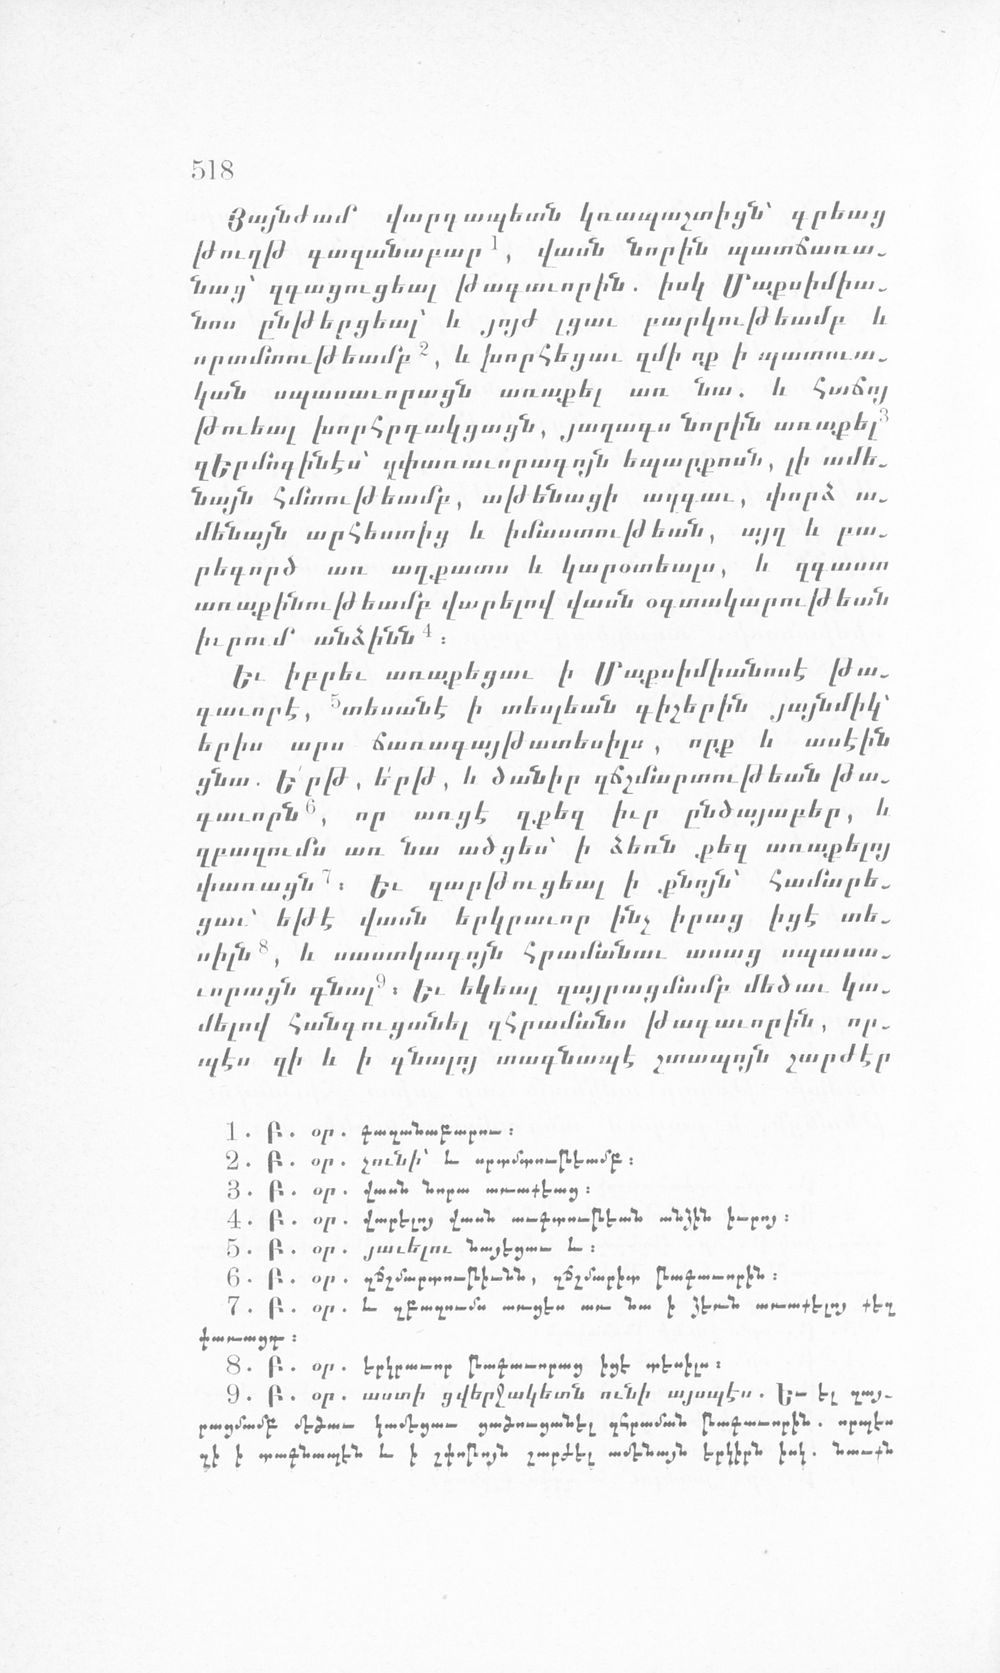 518
Յայնժամ վարդապետն կռապաշտիցն՝ գրեաց
թուղթ գազանաբար 1, վասն նորին պատճառա֊
նաց՝ զգացուցեալ թագաւորին. իսկ Մաքսիմիա֊
նոս ընթերցեալ՝ և յոյժ լցաւ բարկութեամբ և
սրտմտութեամբ 2, և խորհեցաւ զմի ոք ի պատուա֊
կան սպասաւորացն առաքել առ նա. և հաճոյ
թուեալ խորհրդակցացն, յաղագս նորին առաքել 3
զԵրմոգինէս՝ զփառաւորագոյն եպարքոսն, լի ամե֊
նայն հմտութեամբ, աթենացի ազգաւ, փորձ ա֊
մենայն արհեստից և իմաստութեան, այլ և բա֊
րեգործ առ աղքատս և կարօտեալս, և զգաստ
առաքինութեամբ վարելով վասն օգտակարութեան
իւրում անձինն 4:
Եւ իբրեւ առաքեցաւ ի Մաքսիմիանոսէ թա֊
գաւորէ, 5տեսանէ ի տեսլեան գիշերին յայնմիկ՝
երիս արս ճառագայթատեսիլս, որք և ասէին
ցնա. Ե՛րթ, ե՛րթ, և ծանիր զճշմարտութեան թա֊
գաւորն 6, որ առցէ զքեզ իւր ընծայաբեր, և
զբազումս առ նա ածցես՝ ի ձեռն քեզ առաքելոյ
փառացն 7: Եւ զարթուցեալ ի քնոյն՝ համարե֊
ցաւ՝ եթէ վասն երկրաւոր ինչ իրաց իցէ տե֊
սիլն 8, և սաստկագոյն հրամանաւ ասաց սպասա֊
ւորացն գնալ 9: Եւ եկեալ զայրացմամբ մեծաւ կա֊
մելով հանգուցանել զհրամանս թագաւորին, որ֊
պէս զի և ի գնալոյ տագնապէ շտապոյն շարժէր
1. Բ. օր. գազանաբարու:
2. Բ. օր. չունի՝ և սրտմտութեամբ:
3. Բ. օր. վասն նորա առաքեաց:
4. Բ. օր. վարելոյ վասն աւգտութեան անձին իւրոյ:
5. Բ. օր. յաւելու նայեցաւ և:
6. Բ. օր. զճշմարտութիւնն, զճշմարիտ թագաւորին:
7. Բ. օր. և զբազումս առցես առ նա ի ձեռն առաքելոյ քեզ
փառացդ:
8. Բ. օր. երկրաւոր թագաւորաց իցէ տեսիլս:
9. Բ. օր. աստի ցվերջակետն ունի այսպէս. Եւ էլ զայ֊
րացմամբ մեծաւ կամեցաւ ցածուցանել զհրաման թագաւորին. որպէս
զի ի տագնապէն և ի շփոթոյն շարժել ամենայն երկիրն իսկ. նաւքն